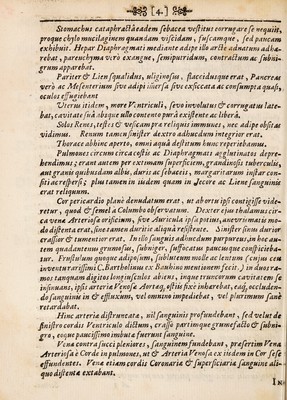 [4.]
Stomachus cataphractâ eadem sebacea vestitus corrugare se nequit,
proque chylo mucilaginem quandam viscidam, fuscamque, sed paucam
exhibuit. Hepar Diaphragmati mediante adipe illo arcte adnatum adhæ-
rebat, parenchyma verò exangue, semiputridum, contractum ac subni-
grum apparebat.
Pariter & Lien squalidus, uliginosus, flaccidusque erat, Pancreas
verò ac Mesenterium sive adipi immersa sive exsiccata ac consumpta quasi,
oculos effugebant
Uterus itidem, more Ventriculi, sevo involutus & corrugatus late-
bat, cavitate suâ absque ullo contento para existente ac libera.
Solos Renes, testes & vesicam præ reliquis immunes, nec adipe obsitas
vidimus. Renum tamen sinister dextro adhucdum integrior erat.
Thorace abhinc aperto, omni aquâ destitum hunc reperiebamus.
Pulmones circum circa costis ac Diaphragmati agglutinatos depre-
hendimus; erant autem per extimam superficiem, grandinosis tuberculis,
aut granis quibusdam albis, duris ac sebaceis, margaritarum instar con-
siti ac respersi; plus tamen in iisdem quam in Jecore ac Liene sanguinis
erat reliquum.
Cor pericardio planè denudatum erat, ut abortu ipsi contigisse vide-
retur, quod & semel a Columbo observatum. Dexter ejus thalamus cir-
ca venæ Arteriosæ orificium, sive Auricula ipsa potius, aneurismatis mo-
do distenta erat, sine tamen duritie aliquâ resistente. Sinister sinus durior
crassior & tumentior erat. In illo sanguis adhucdum purpureus, in hoc au-
tem qualantenus grumosus, subniger, suffocatus paucusque conspicieba-
tur. Frustulum quoque adiposum, sublutuem molle ac lentum (cujus ceu
inventu rarissimi C. Bartholinus ex Bauhino mentionem facit) in duos ra-
mos tandem digitos longiusculos abiens, inque truncorum cavitatem se
insinuans, ipsis arteriæ Venosæ Aortæq, ostiis fixè inhærebat, eaq, occluden-
do sanguinis in & effluxum, vel omnino impediebat, vel plurimum sanè
retardabat.
Hinc arteria distruncata, nil sanguinis profundebat, sed velut de
sinistro cordis Ventriculo dictum, crasso partimque grumefacto & subni-
gro, eoque paucissimo imbuta fuerunt sanguine.
Vena contra succi pleniores, sanguinem fundebant, præsertim Vena
Arteriosa è Corde in pulmones, ut & Arteria Venosa ex iisdem in Cor sese
effundentes. Vena etiam cordis Coronaria & superficiaria sanguine ali-
quo distentæ extabant.